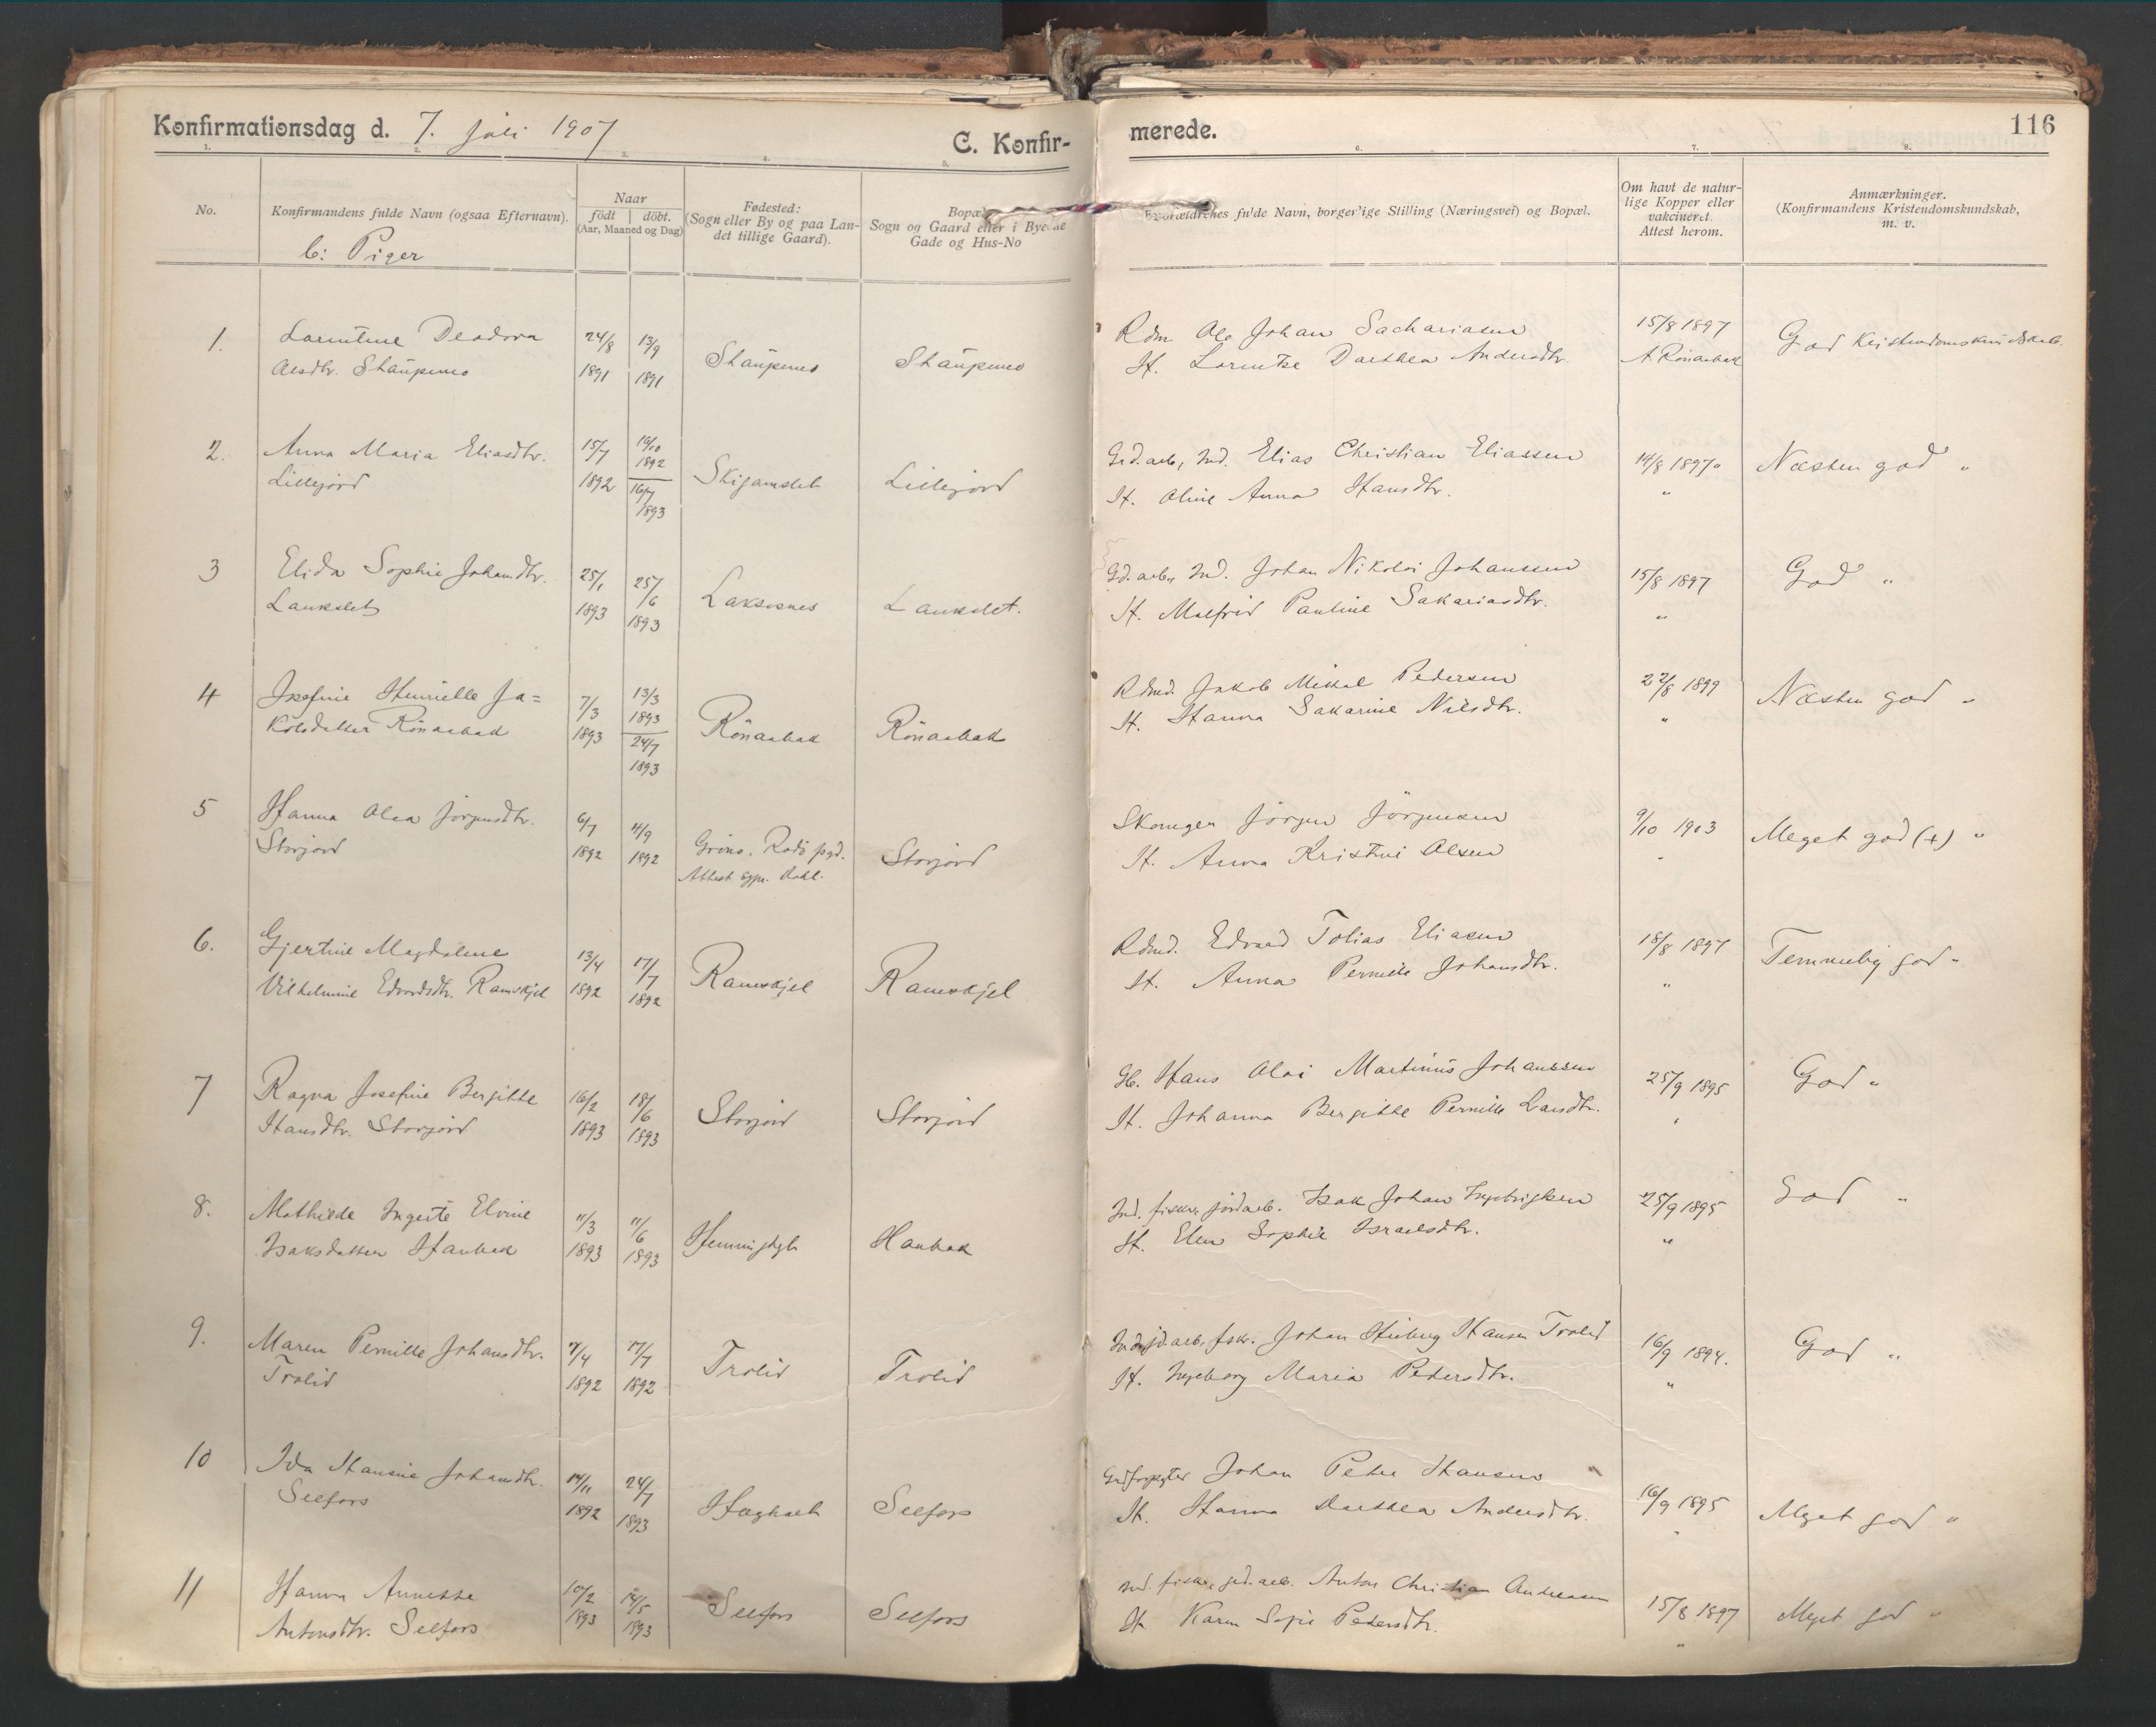 Konfirmationsdag d. 7. Juli 1907
C. Konfir-
merede.
116
1. 2. 3. 4. 5. 6. 7. 8.
No.
Konfirmandens fulde Navn (ogsaa Efternavn).
b: Piger
Naar
födt döbt.
(Aar, Maaned og Dag)
Fødested:
(Sogn eller By og paa Lan-
det tillige Gaard).
Sogn og Gaard eller i Byerne
Gade og Hus-No
fulde Navn, borgerlige Stilling (Næringsvei) og Bopæl.
Om havt de natur-
lige Kopper eller
vakcineret.
Attest herom.
Anmærkninger.
(Konfirmandens Kristendomskundskab,
m. v.
1. Larentine Deodora 24/8 13/9
Olsdtr. Staupenes 1891 1891 Staupenes Staupenes
Rdm. Ole Johan Sachariasen 15/8 1897
H. Lorentze Darthea Andersdtr. A. Rönaabak God Kristendomskundskab.
2. Anna Maria Eliasdtr. 15/7 16/10 1892
Lillejord 1892 16/7 1893 Skjgamslet Lillejord
Grd.arb, Ind. Elias Christian Eliassen 14/8 1897 Næsten god "
H. Oline Anna Hansdtr. "
3 Elida Sophie Johansdtr. 25/1 25/6
Laukslet 1893 1893 Laksesnes Laukslet.
Gd.arb, Ind. Johan Nikolai Johanssen 15/8 1897 God "
H. Malfrid Pauline Sakariasdtr. "
4 Josefine Henrielle Ja=
kobsdatter Rönaabak 7/3 1893 13/3 1893 24/7 1893 Rönaabak Rönaabak
Rdmd. Jakob Mikal Pedersen 22/8 1899 Næsten god "
H. Hanna Sakarine Nilsdtr. "
5 Hanna Olea Jörgensdtr. 6/7 11/9
Storjord 1892 1892 Grönö, Rödö pgd. Storjord
Attest Dahl.
Jörgen Jörgensen 9/10 1903 Meget god (+) "
H. Anna Kristine Olsen "
6. Gjertine Magdalene 13/4 17/7
Vilhelmine Edvardsdtr. Ramskjel 1892 1892 Ramskjel Ramskjel
Rdmd. Edvard Tobias Eliasen 18/8 1897 Temmelig god "
H. Anna Pernille Johansdtr. "
7 Ragna Josefine Bergitte 16/2 18/6
Hansdtr. Storjord 1893 1893 Storjord Storjord
Gb. Hans Olai Martinus Johanssen 25/9 1895 God "
H. Johanna Bergitte Pernille Larsdtr. "
8. Mathilde Elvine 11/3 11/6
Isaksdatter Haubak 1893 1893 Haubak
Ind. fisker, jordarb. Isak Johan Ingebrigtsen 25/9 1895 God "
H. Elen Sophie Israelsdtr. "
9. Maren Pernille Johansdtr. 7/4 17/7
Trolid 1892 1892 Trolid Trolid
Ind. jd.arb, fskr. Johan Hansen Trolid 16/9 1894. God "
H. Ingeborg Maria Pedersdtr. "
10 Ida Hansine Johansdtr. 14/11 24/7
Selfors 1892 1893 Selfors
Johan Peter Hansen 16/9 1895 Meget god "
H. Hanna Darthea Andersdtr. "
11 Hanna Annette 10/2 14/5
Antonsdtr. Selfors 1893 1893 Selfors Selfors
Ind. fisker, jd.arb. Anton Christian Andreasen 15/8 1897 Meget god "
H Karen Sofie Pedersdtr. "